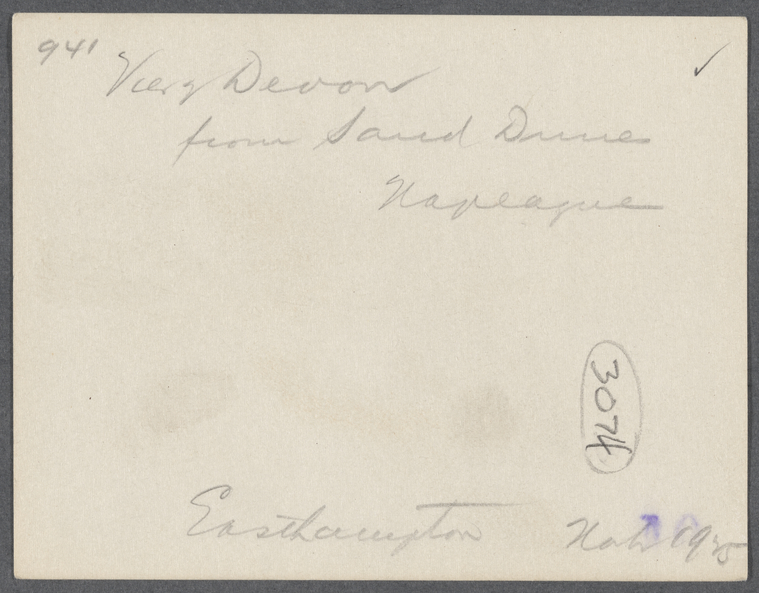 941 View Devon ✓
from Sand Dune
Napeague
3074
Easthampton 1925